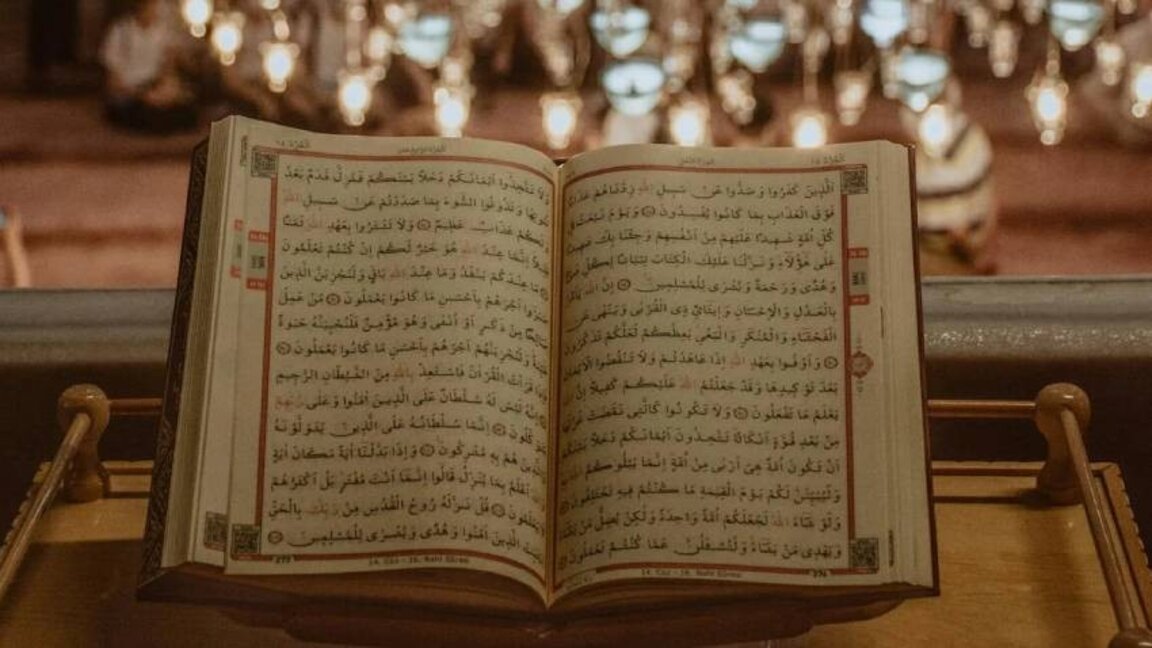 اَلَّذِينَ كَفَرُوا وَصَدُّوا عَنْ سَبِيلِ اللهِ زِدْنَاهُمْ عَذَابًا
فَوْقَ الْعَذَابِ بِمَا كَانُوا يُفْسِدُونَ ۝ وَيَوْمَ نَبْعَثُ فِي
كُلِّ أُمَّةٍ شَهِيدًا عَلَيْهِمْ مِنْ أَنْفُسِهِمْ وَجِئْنَا بِكَ شَهِيدًا
عَلَى هَؤُلَاءِ وَنَزَّلْنَا عَلَيْكَ الْكِتَابَ تِبْيَانًا لِكُلِّ شَيْءٍ
وَهُدًى وَرَحْمَةً وَبُشْرَى لِلْمُسْلِمِينَ ۝ إِنَّ اللهَ يَأْمُرُ
بِالْعَدْلِ وَالْإِحْسَانِ وَإِيتَائِ ذِي الْقُرْبَى وَيَنْهَى عَنِ
الْفَحْشَاءِ وَالْمُنْكَرِ وَالْبَغْيِ يَعِظُكُمْ لَعَلَّكُمْ تَذَكَّرُونَ
۝ وَأَوْفُوا بِعَهْدِ اللهِ إِذَا عَاهَدْتُمْ وَلَا تَنْقُضُوا الْأَيْمَانَ
بَعْدَ تَوْكِيدِهَا وَقَدْ جَعَلْتُمُ اللهَ عَلَيْكُمْ كَفِيلًا إِنَّ
يَعْلَمُ مَا تَفْعَلُونَ ۝ وَلَا تَكُونُوا كَالَّتِي نَقَضَتْ غَزْلَهَا
مِنْ بَعْدِ قُوَّةٍ أَنْكَاثًا تَتَّخِذُونَ أَيْمَانَكُمْ دَخَلًا بَيْنَكُمْ
أَنْ تَكُونَ أُمَّةٌ هِيَ أَرْبَى مِنْ أُمَّةٍ إِنَّمَا يَبْلُوكُمُ اللهُ
وَلَيُبَيِّنَنَّ لَكُمْ يَوْمَ الْقِيٰمَةِ مَا كُنْتُمْ فِيهِ تَخْتَلِفُونَ
وَلَوْ شَاءَ اللهُ لَجَعَلَكُمْ أُمَّةً وَاحِدَةً وَلَكِنْ يُضِلُّ مَنْ يَشَاءُ
وَيَهْدِي مَنْ يَشَاءُ وَلَتُسْئَلُنَّ عَمَّا كُنْتُمْ تَعْمَلُونَ
14. Cüz - 16. Nahl Sûresi
276
وَلَا تَتَّخِذُوا أَيْمَانَكُمْ دَخَلًا بَيْنَكُمْ فَتَزِلَّ قَدَمٌ بَعْدَ
ثُبُوتِهَا وَتَذُوقُوا السُّوءَ بِمَا صَدَدْتُمْ عَنْ سَبِيلِ اللهِ
وَلَكُمْ عَذَابٌ عَظِيمٌ ۝ وَلَا تَشْتَرُوا بِعَهْدِ اللهِ ثَمَنًا
قَلِيلًا إِنَّمَا عِنْدَ اللهِ هُوَ خَيْرٌ لَكُمْ إِنْ كُنْتُمْ تَعْلَمُونَ
۝ مَا عِنْدَكُمْ يَنْفَدُ وَمَا عِنْدَ اللهِ بَاقٍ وَلَنَجْزِيَنَّ الَّذِينَ
صَبَرُوا أَجْرَهُمْ بِأَحْسَنِ مَا كَانُوا يَعْمَلُونَ ۝ مَنْ عَمِلَ
صَالِحًا مِنْ ذَكَرٍ أَوْ أُنْثَى وَهُوَ مُؤْمِنٌ فَلَنُحْيِيَنَّهُ حَيٰوةً
طَيِّبَةً وَلَنَجْزِيَنَّهُمْ أَجْرَهُمْ بِأَحْسَنِ مَا كَانُوا يَعْمَلُونَ ۝
فَإِذَا قَرَأْتَ الْقُرْآنَ فَاسْتَعِذْ بِاللهِ مِنَ الشَّيْطَانِ الرَّجِيمِ
۝ إِنَّهُ لَيْسَ لَهُ سُلْطَانٌ عَلَى الَّذِينَ آمَنُوا وَعَلَى رَبِّهِمْ
يَتَوَكَّلُونَ ۝ إِنَّمَا سُلْطَانُهُ عَلَى الَّذِينَ يَتَوَلَّوْنَهُ
وَالَّذِينَ هُمْ بِهِ مُشْرِكُونَ ۝ وَإِذَا بَدَّلْنَا آيَةً مَكَانَ آيَةٍ
أَعْلَمُ بِمَا يُنَزِّلُ قَالُوا إِنَّمَا أَنْتَ مُفْتَرٍ بَلْ أَكْثَرُهُمْ
يَعْلَمُونَ ۝ قُلْ نَزَّلَهُ رُوحُ الْقُدُسِ مِنْ رَبِّكَ بِالْحَقِّ
لِيُثَبِّتَ الَّذِينَ آمَنُوا وَهُدًى وَبُشْرَى لِلْمُسْلِمِينَ ۝
14. Cüz - 16. Nahl Sûresi
277